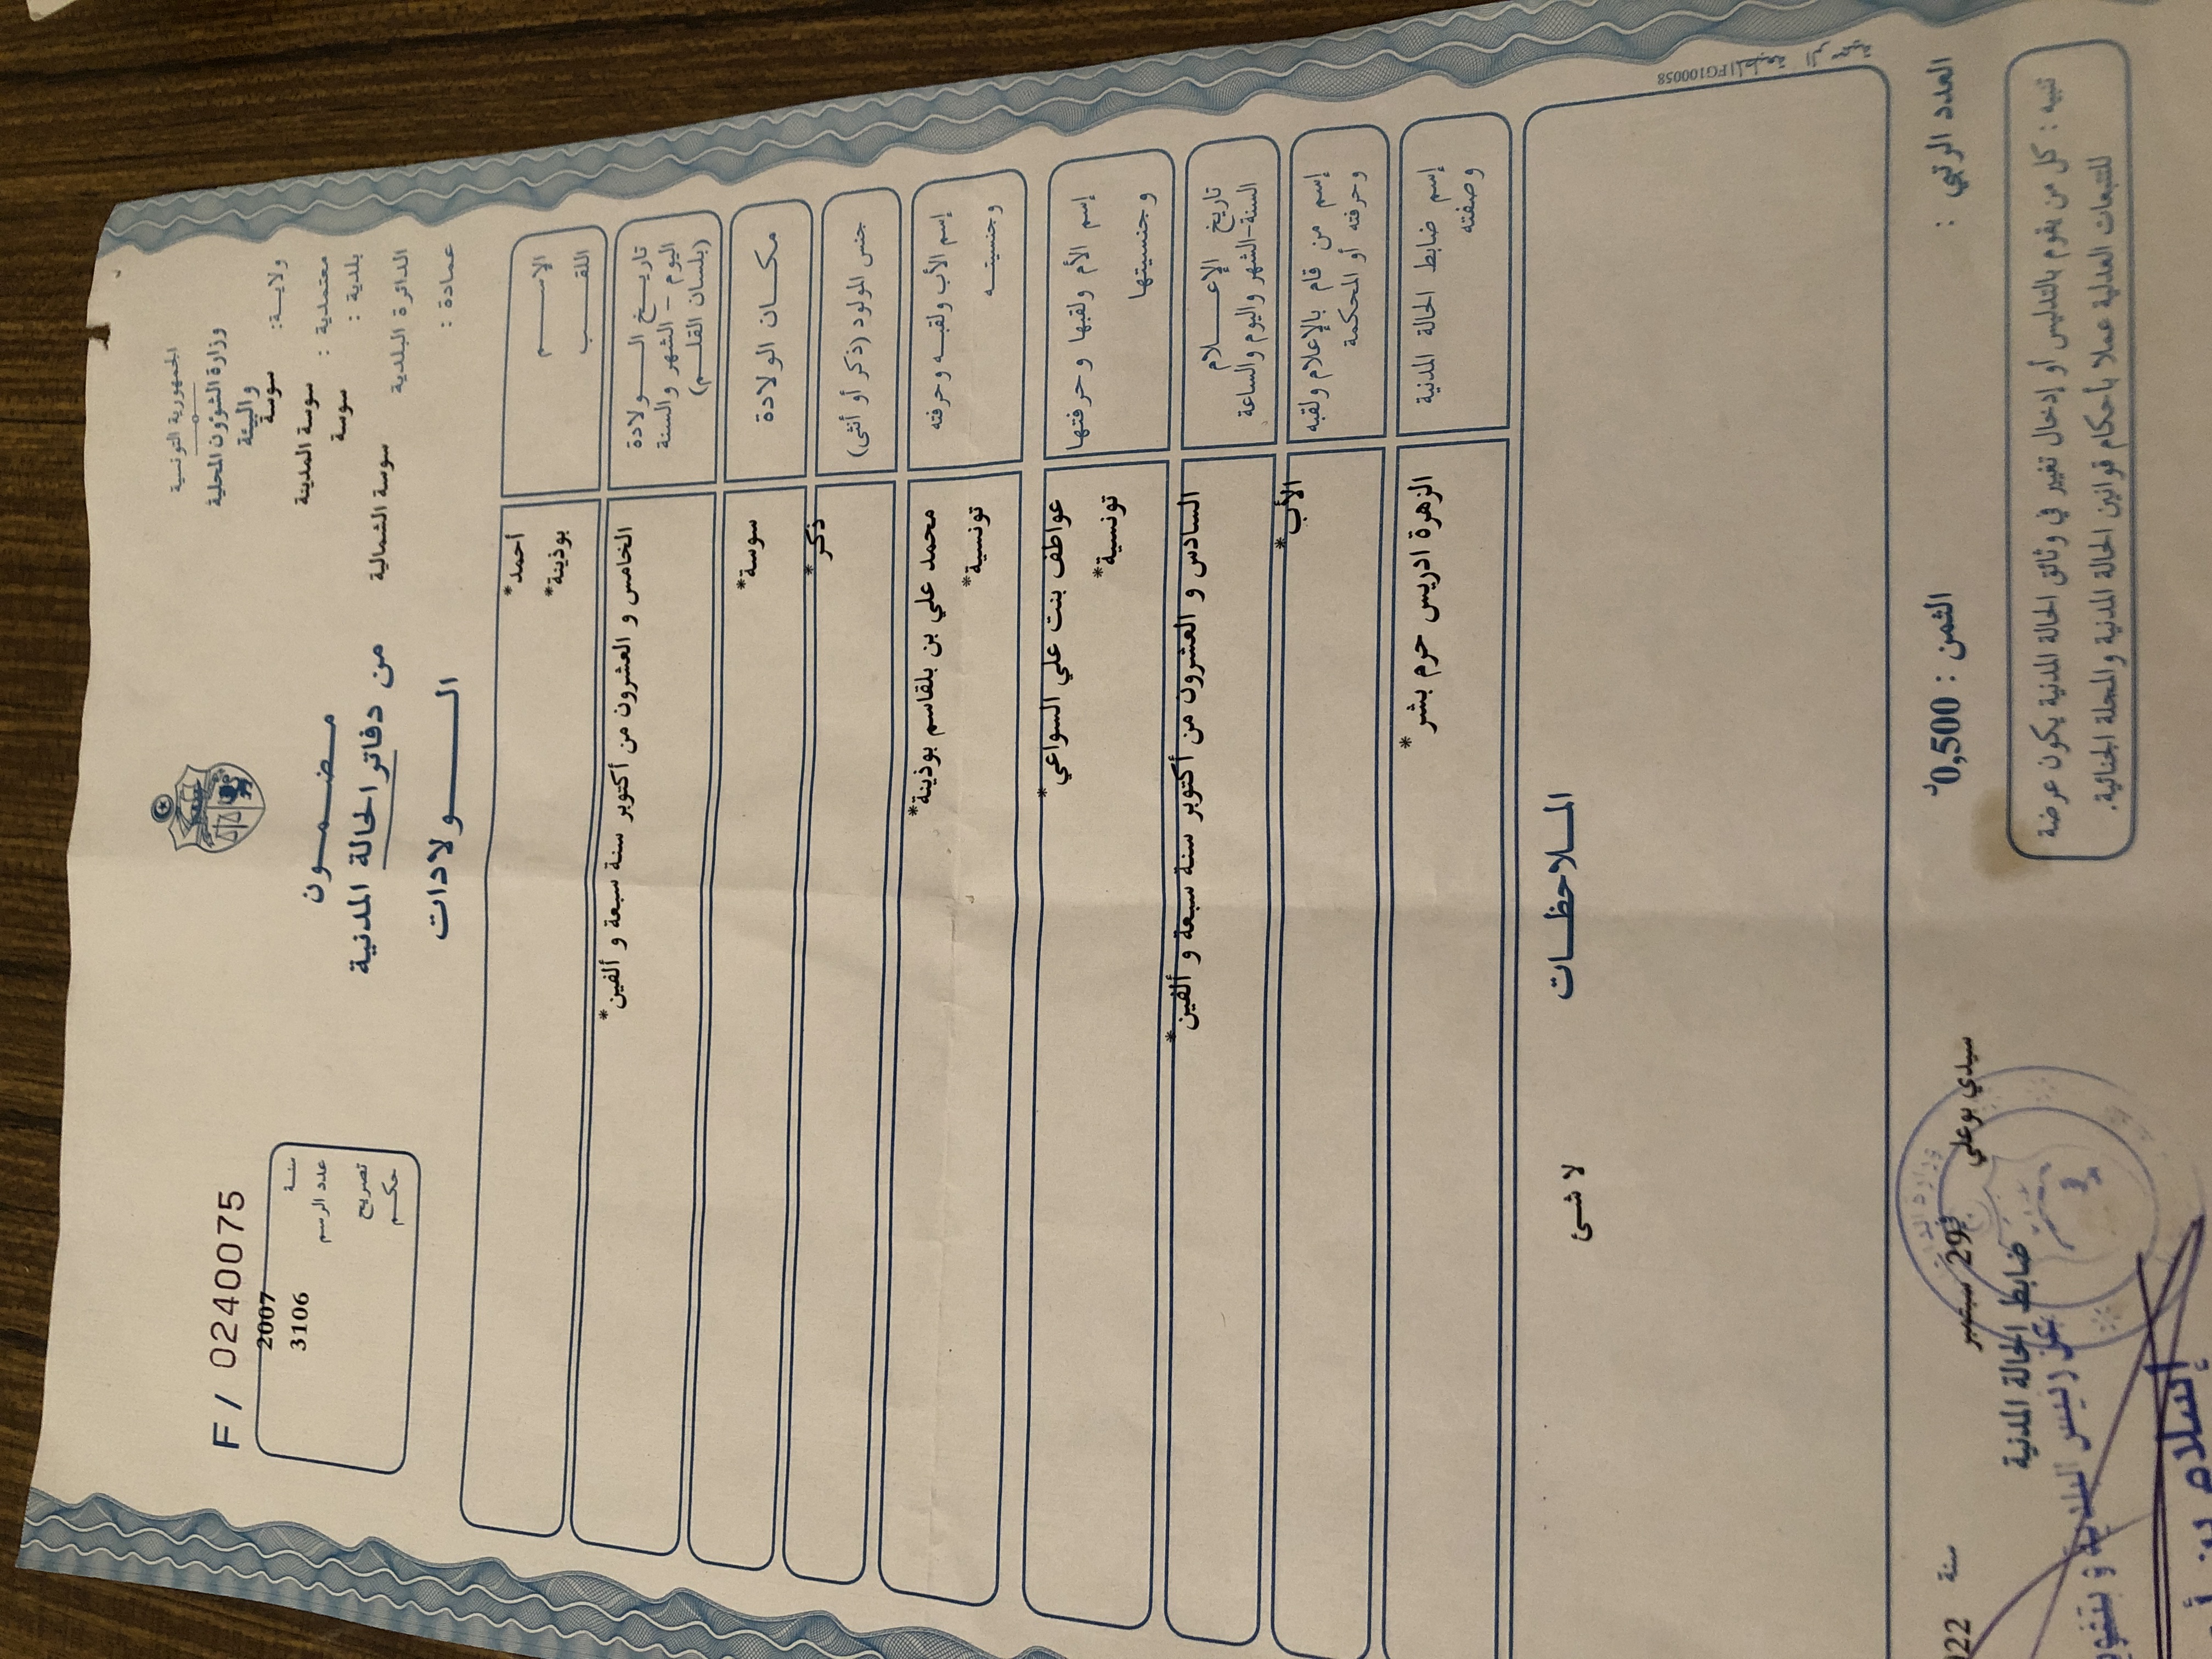 الجمهورية التونسية
وزارة الشؤون المحلية
والبيئة
ولاية: سوسة
معتمدية : سوسة المدينة
بلدية : سوسة
الدائرة البلدية سوسة الشمالية
عمادة :
مضمون
من دفاتر الحالة المدنية
الولادات
F / 0240075
سنة 2007
عدد الرسم 3106
تصريح
حكم
الاسم احمد*
اللقب بوذينة*
تاريخ الولادة
اليوم - الشهر والسنة
(بلسان القلم)
الخامس و العشرون من أكتوبر سنة سبعة و ألفين*
مكان الولادة سوسة*
جنس المولود (ذكر أو أنثى) ذكر*
إسم الأب ولقبه وحرفته محمد علي بن بلقاسم بوذينة*
وجنسيته تونسية*
إسم الأم ولقبها وحرفتها عواطف بنت علي السواعي*
وجنسيتها تونسية*
تاريخ الإعلام
السنة-الشهر واليوم والساعة
السادس و العشرون من أكتوبر سنة سبعة و ألفين*
إسم من قام بالإعلام ولقبه
وحرفته أو المحكمة
الأب*
إسم ضابط الحالة المدنية الزهرة ادريس حرم بشر*
وصفته
الملاحظات
لا شئ
FG100058
العدد الرتبي :
الثمن : 0,500د
سيدي بوعلي
29 سبتمبر
سنة
ضابط الحالة المدنية
تنبيه : كل من يقوم بالتدليس أو إدخال تغيير في وثائق الحالة المدنية يكون عرضة
للتتبعات العدلية عملا بأحكام قوانين الحالة المدنية والمجلة الجنائية.
عن رئيس البلدية و بتفويض
إسلام بن